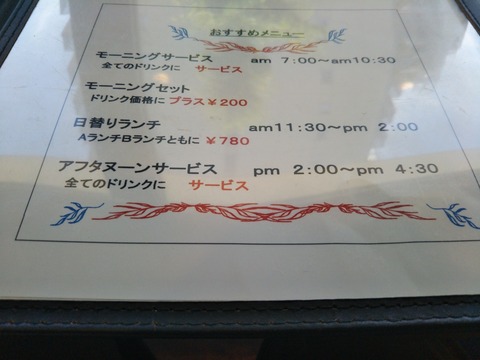 おすすめメニュー
モーニングサービス am 7:00～am10:30
全てのドリンクに サービス
モーニングセット
ドリンク価格に プラス￥200
日替りランチ am11:30～pm 2:00
AランチBランチともに ￥780
アフタヌーンサービス pm 2:00～pm 4:30
全てのドリンクに サービス